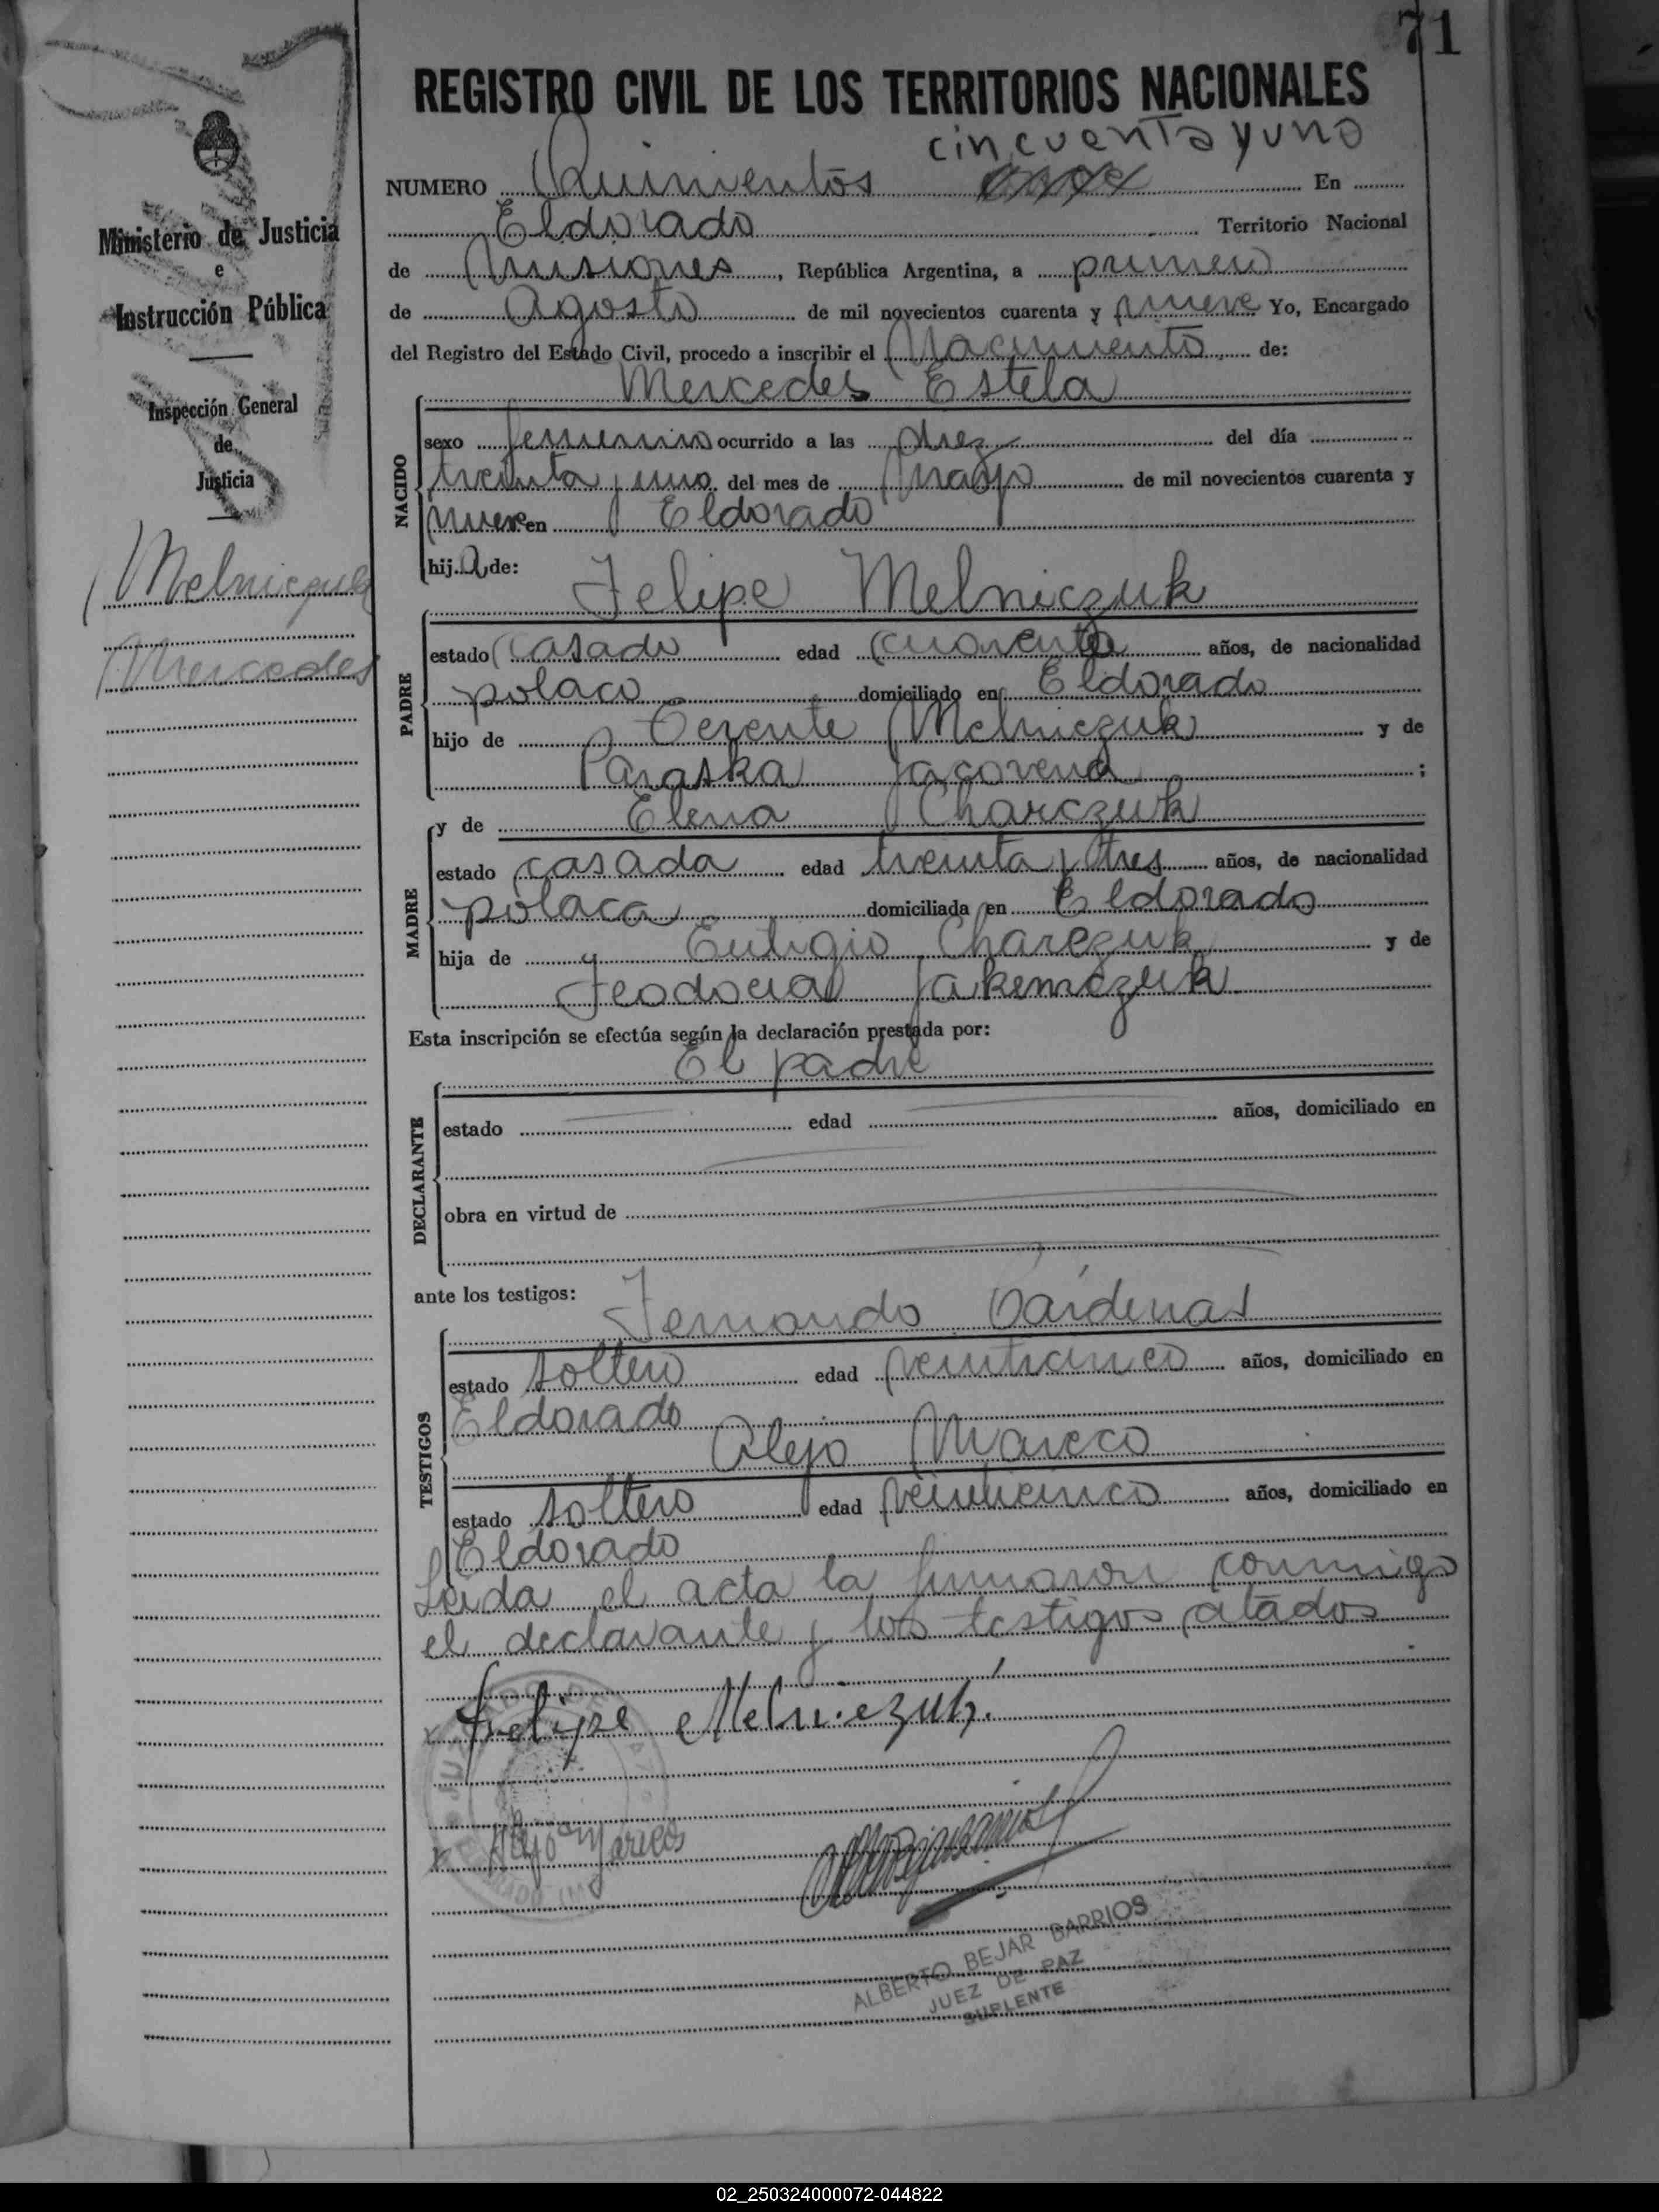 71
REGISTRO CIVIL DE LOS TERRITORIOS NACIONALES
cincuenta y uno
NUMERO Quinientos once En
Eldorado Territorio Nacional
de Misiones, República Argentina, a primero
de Agosto de mil novecientos cuarenta y nueve Yo, Encargado
del Registro del Estado Civil, procedo a inscribir el Nacimiento de:
Mercedes Estela
Ministerio de Justicia
e
Instrucción Pública
Inspección General
de
Justicia
Melniczuk
Mercedes
NACIDO
sexo femenino ocurrido a las diez del día
treinta y uno del mes de Mayo de mil novecientos cuarenta y
nueve en Eldorado
hija de:
Felipe Melniczuk
PADRE
estado casado edad cuarenta años, de nacionalidad
polaco domiciliado en Eldorado
hijo de Terente Melniczuk y de
Paraska ;
MADRE
y de Elena Charczuk
estado casada edad treinta y tres años, de nacionalidad
polaca domiciliada en Eldorado
hija de Charczuk y de
Teodocia
Esta inscripción se efectúa según la declaración prestada por:
El padre
DECLARANTE
estado edad años, domiciliado en
obra en virtud de
ante los testigos:
Fernando Cárdenas
TESTIGOS
estado soltero edad veinticinco años, domiciliado en
Eldorado
Alejo Mareco
estado soltero edad veinticinco años, domiciliado en
Eldorado
Leida el acta la firmaron conmigo
el declarante y los testigos citados
Felipe Melniczuk.
Alejo Mareco
ALBERTO BEJAR BARRIOS
JUEZ DE PAZ
SUPLENTE
02_250324000072-044822